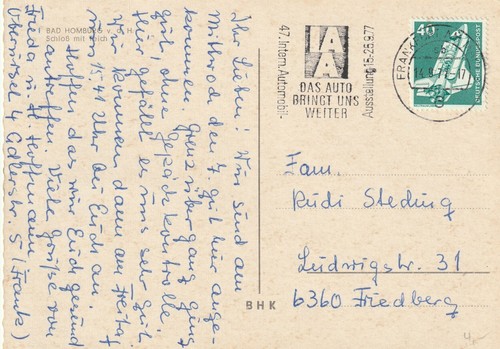 BAD HOMBURG v. d. H.
Schloß mit Teich
Ihr Lieben! Wir sind am
Mittwoch den 7. gut hier ange-
kommen, Grenzübergang ging
gut ohne Gepäckkontrolle.
Hier gefällt es uns sehr gut.
Wir kommen dann am Freitag
um 15,41 Uhr bei Euch an.
Hoffen das wir Euch gesund
antreffen. Viele Grüße von
Frieda u. H. Hoffmann
Oberursel 4 Adlerstr. 5 (Frank)
BHK
47. Intern. Automobil-
Ausstellung 15.-25.9.77
IAA
DAS AUTO
BRINGT UNS
WEITER
FRANKF
40
DEUTSCHE BUNDESPOST
Fam.
Rudi Steding
Ludwigstr. 31
6360 Friedberg